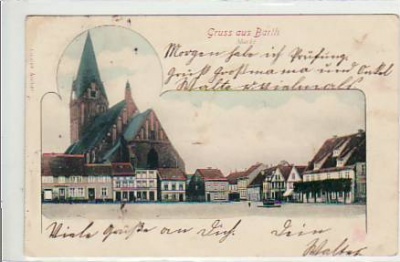 Gruss aus Barth
Markt
Morgen habe ich Prüfung.
Grüß Großmama und Onkel
Walte u. vielmals
Viele Grüße an Dich. Dein
Walter